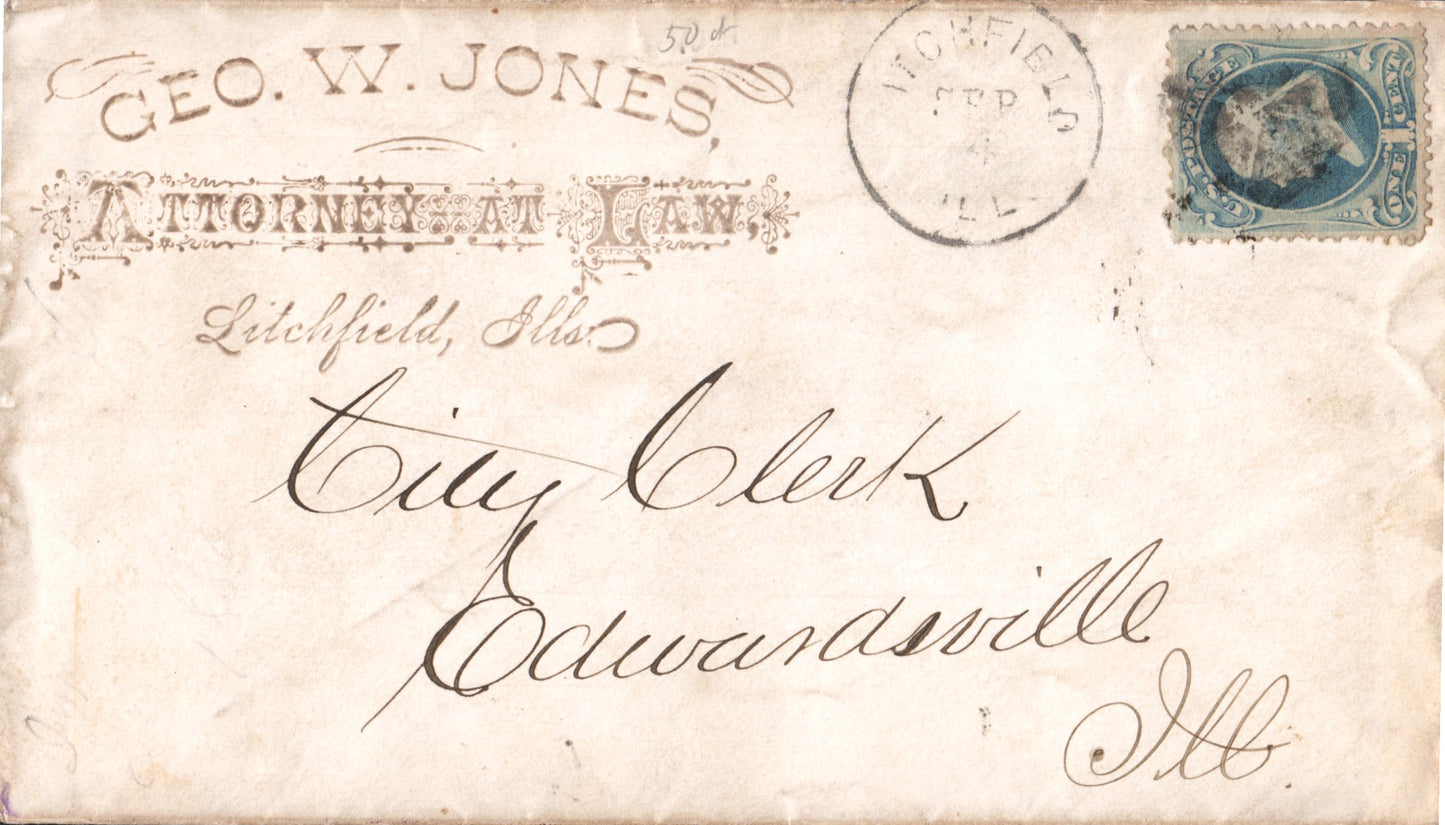 50 ct
GEO. W. JONES,
ATTORNEY AT LAW,
Litchfield, Ills.
LITCHFIELD
SEP
4
ILL.
U.S. POSTAGE
ONE 1 CENT
City Clerk
Edwardsville
Ill.